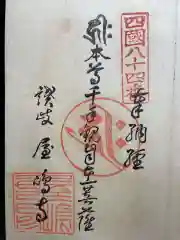 四國八十四番
奉納經
本尊千手観自在菩薩
讃岐 屋嶋寺